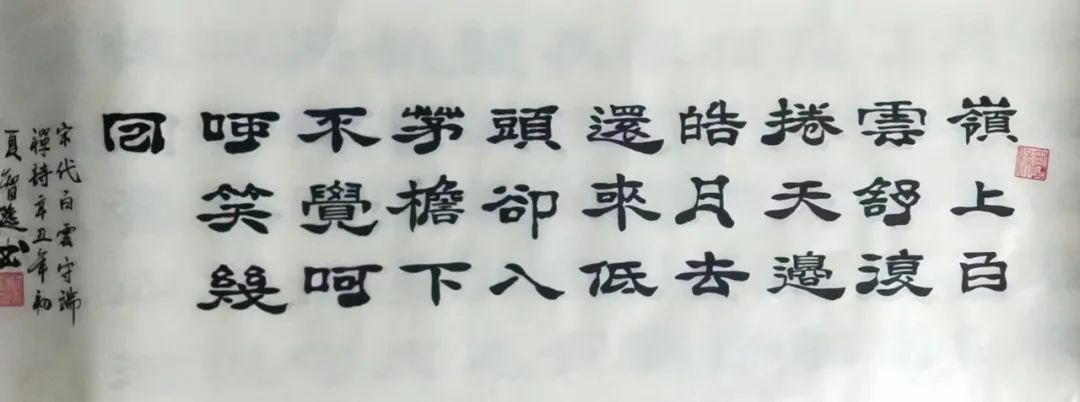 嶺上白
雲舒復
捲天邊
皓月去
還來低
頭卻入
茅檐下
不覺呵
呵笑幾
回
宋代白雲守端
禪詩辛丑年初
夏智书